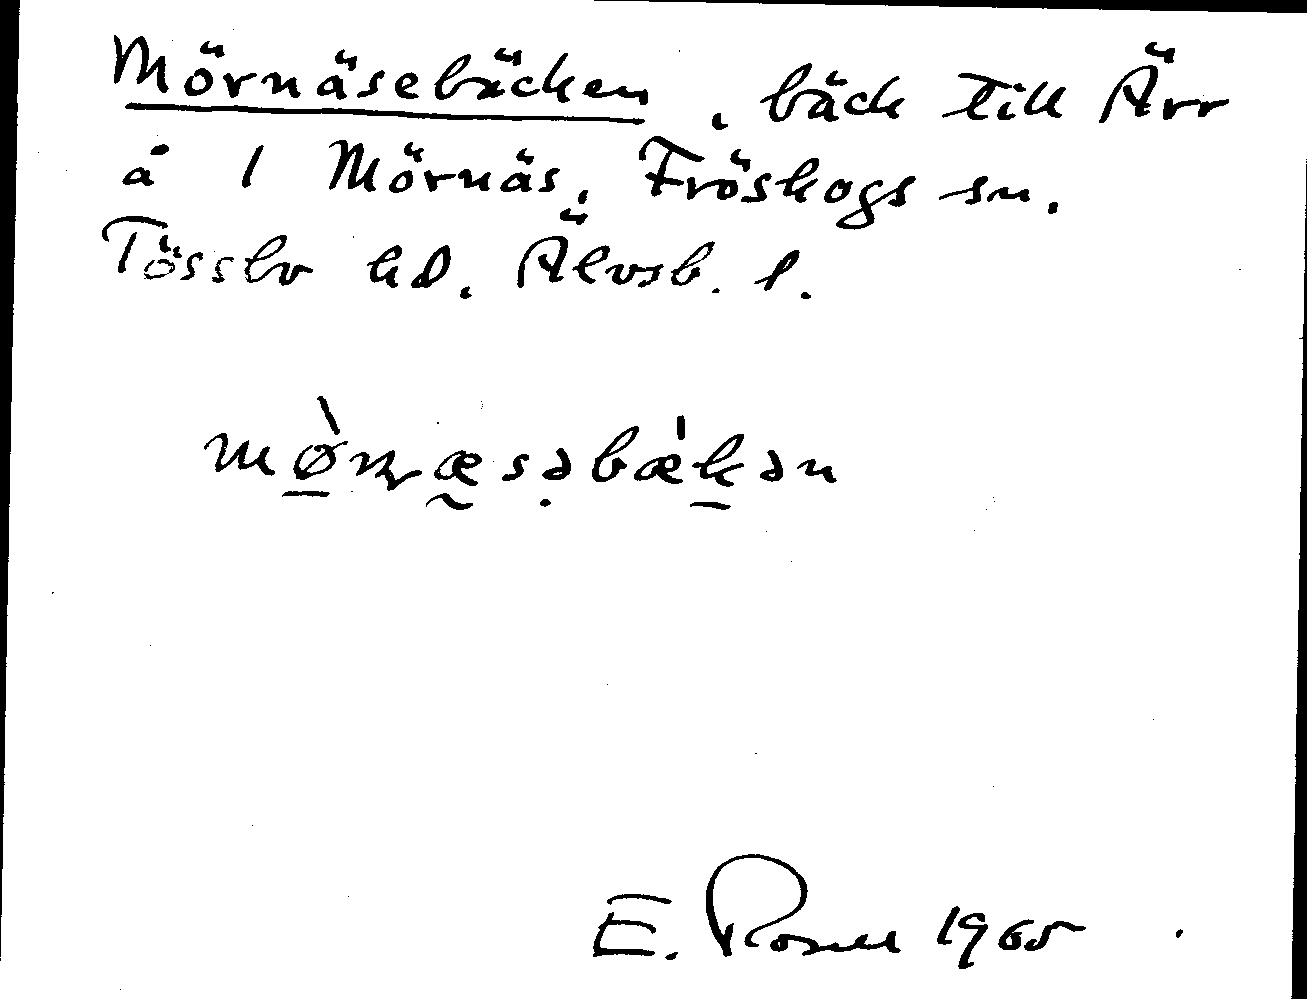 Mörnäsebäcken, bäck till Ärr
å 1 Mörnäs, Fröskogs sn.
Tössbo hd. Älvsb. l.
mø̱̀ɳæ̰sə̣bæ̍ḵən
E. Rosell 1965